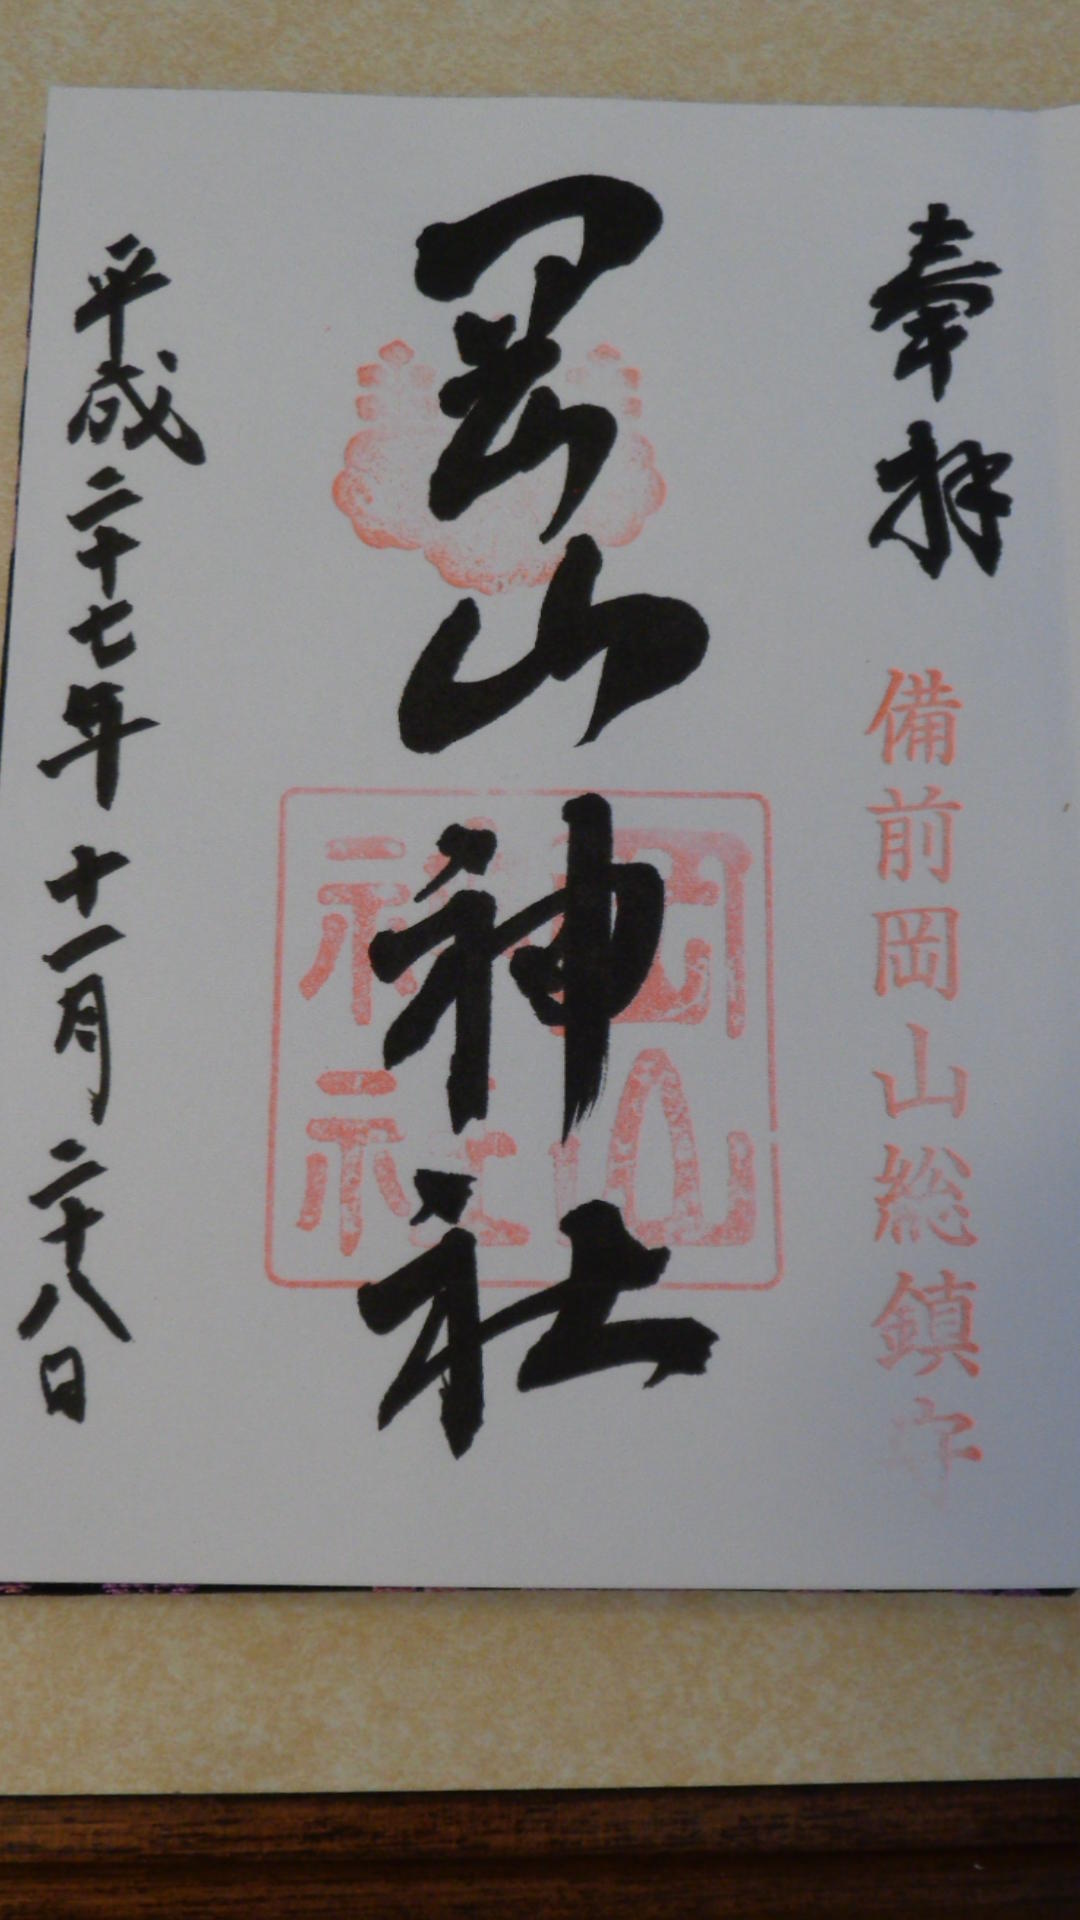 奉拝
備前岡山総鎮守
岡山神社
岡山
神社
平成二十七年十一月二十八日